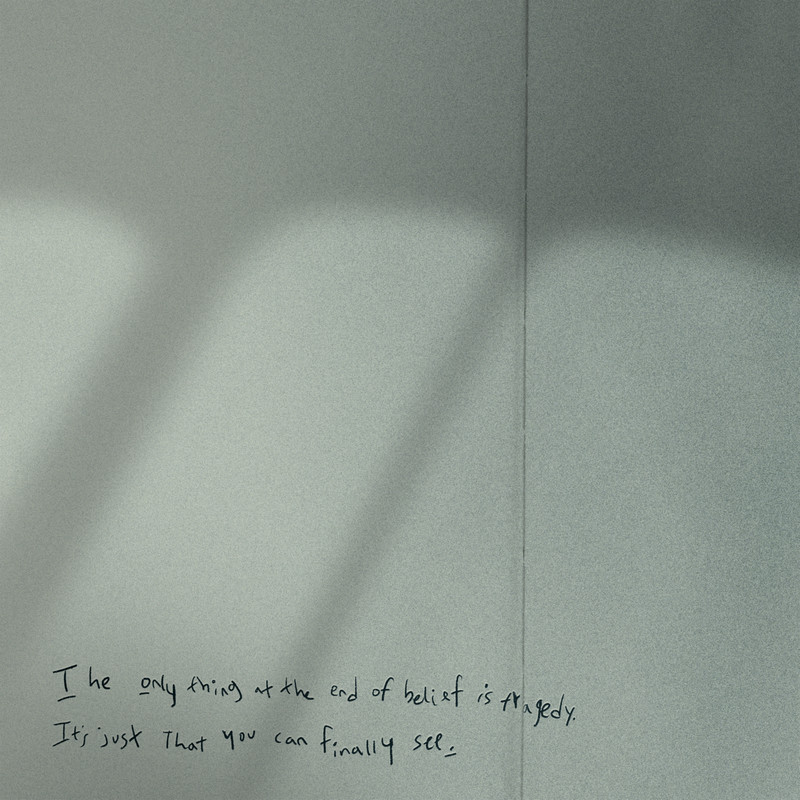 The only thing at the end of belief is tragedy.
It's just That you can finally see.